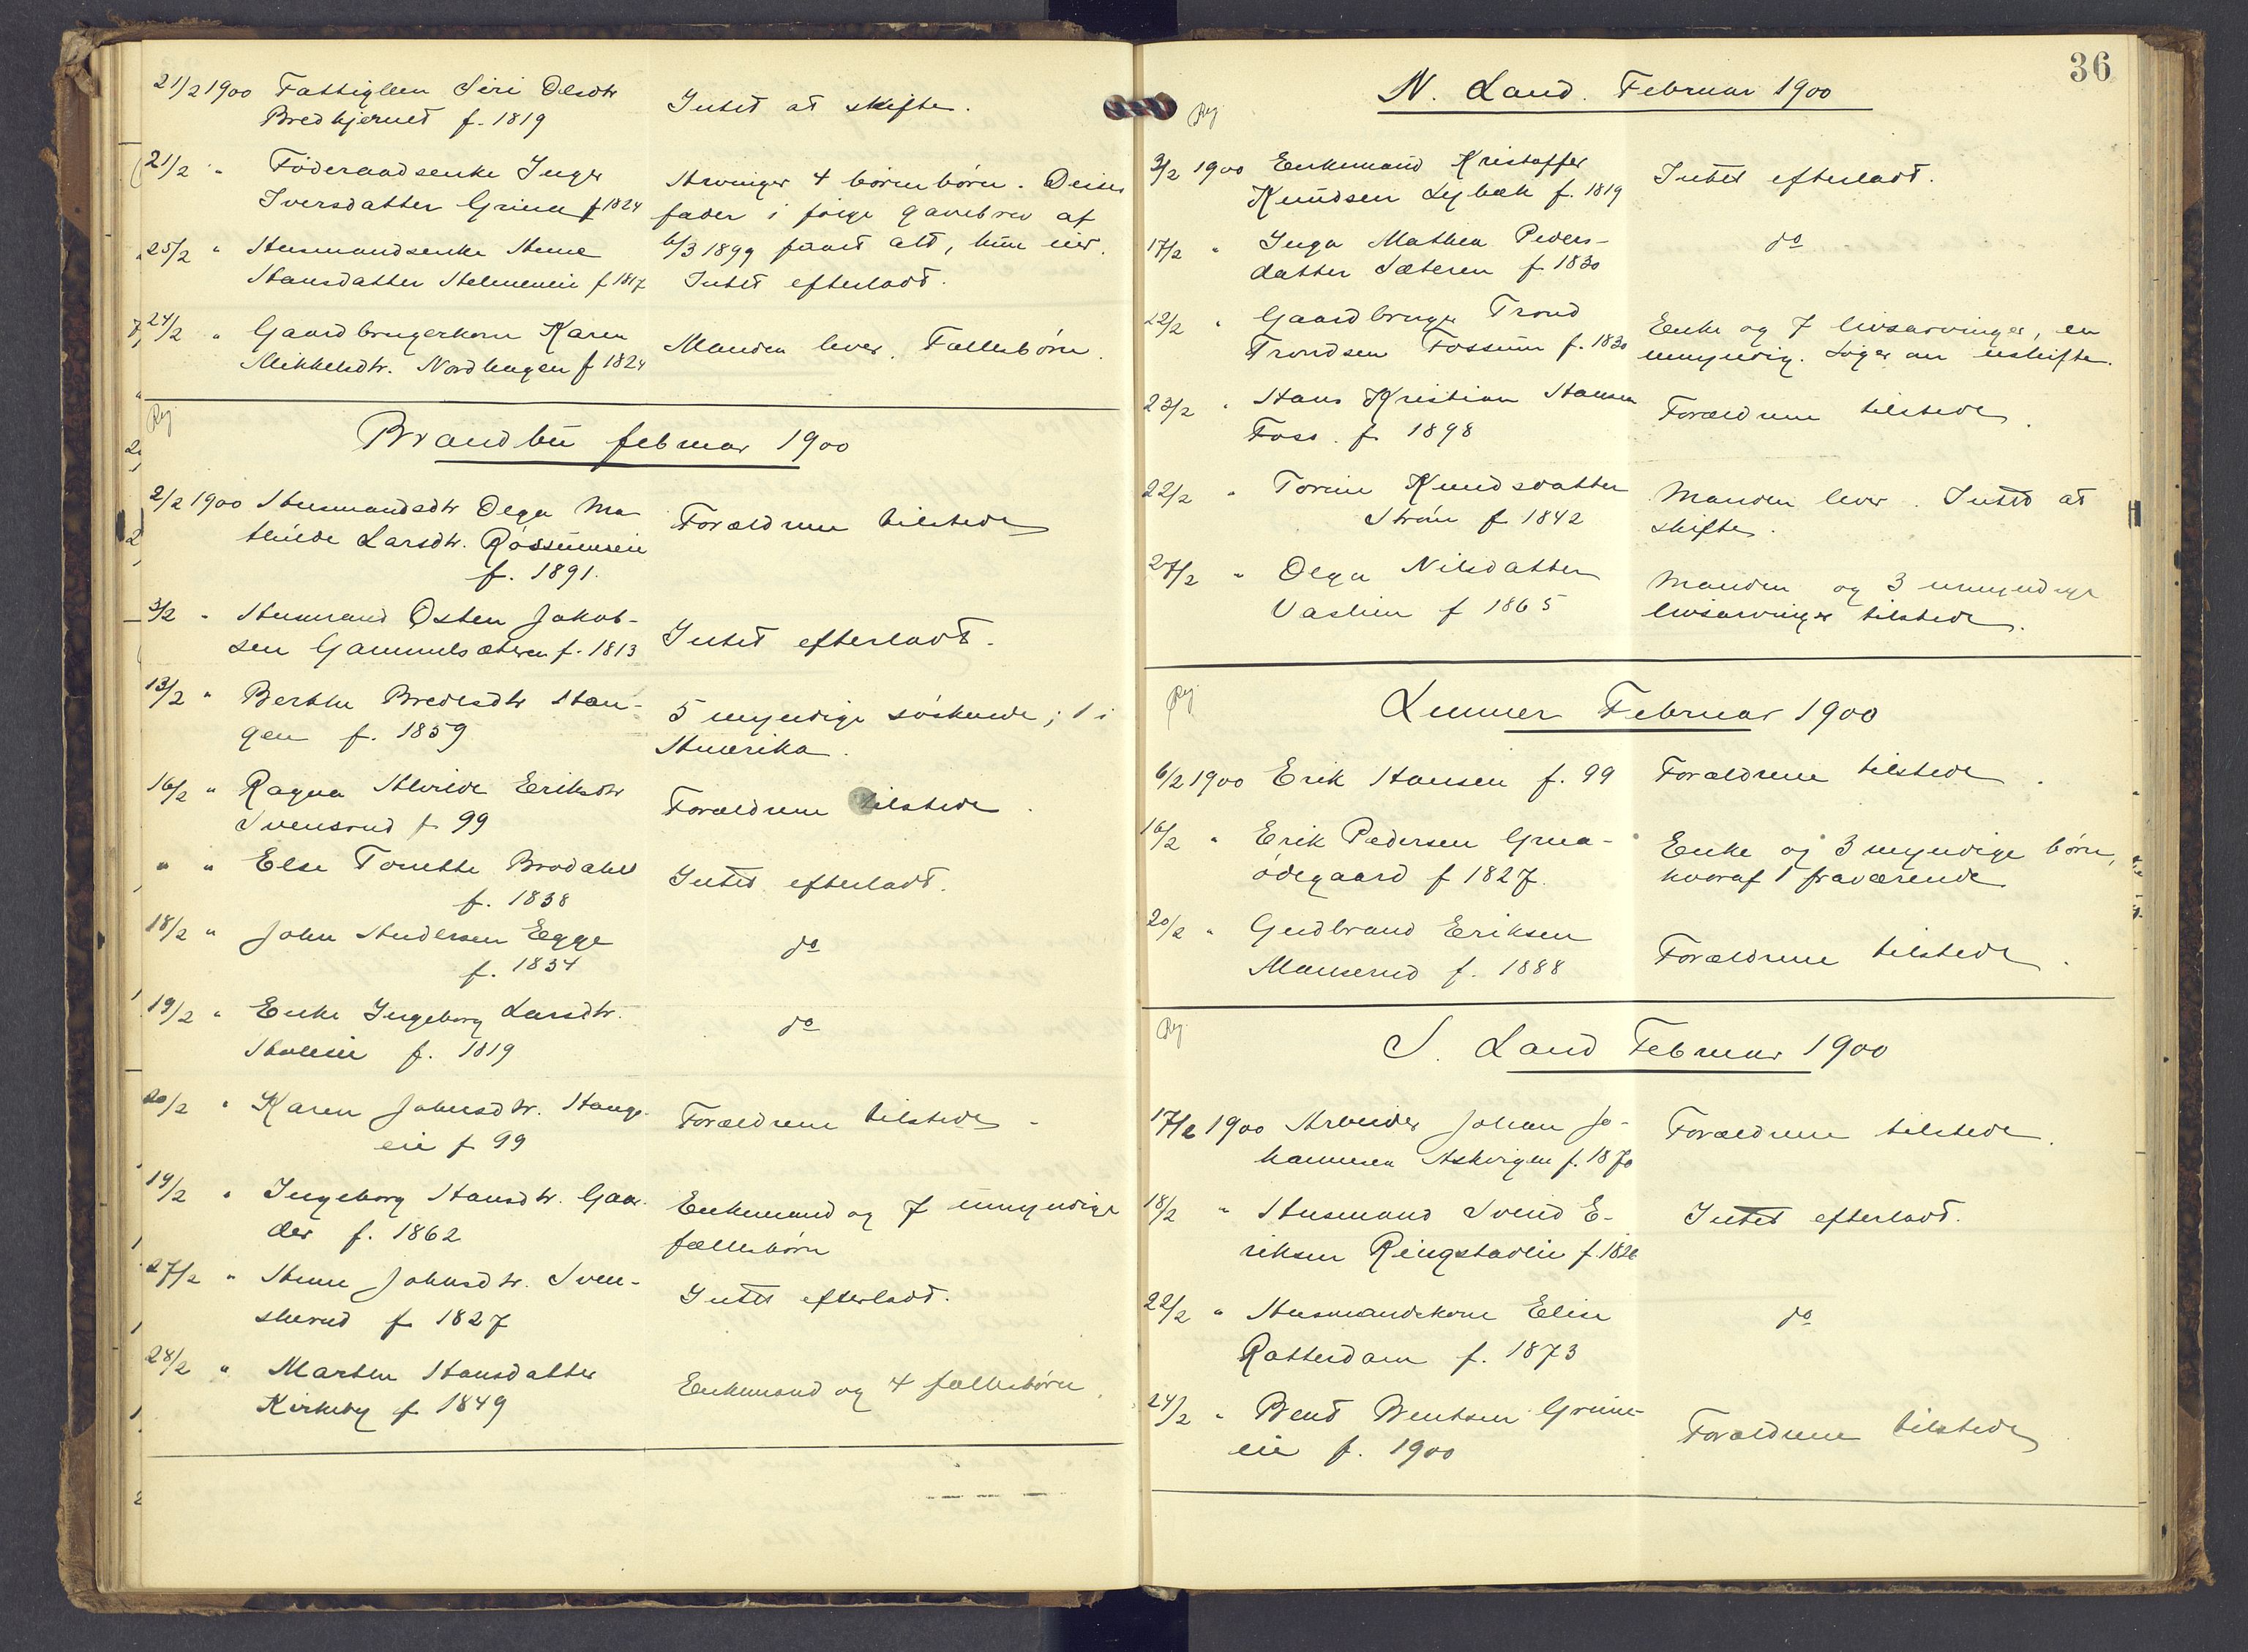 21/2 1900 Fattiglem Siri Olsdtr
Bredkjernet f. 1819
Intet at skifte.
21/2 " Föderaadsenke Inger
Iversdatter Grina f 1824
Arvinger 4 börnebörn. Deres
fader i følge gavebrev af
6/3 1899 faaet alt, hun eier.
25/2 " Husmandsenke Anne
Hansdatter Helmeneie f 1817
Intet efterladt.
24/2 " Gaardbrugerkone Karen
Mikkelsdtr. Nordhagen f 1824
Manden lever. Fællesbörn.
Reg.
Brandbu februar 1900
2/2 1900 Husmandsdtr Olga Ma-
thilde Larsdtr. Røssumseie
f. 1891.
Forældrene tilstede
3/2 " Husmand Østen Jakob-
sen Gammelsæteren f. 1813
Intet efterladt.
13/2 " Berthe Bredesdtr Han-
gen f. 1859
5 myndige söskende; 1 i
Amerika.
16/2 " Ragna Alvilde Eriksdtr
Svensrud f 99
Forældrene tilstede.
" " Else Tonette Brodahl
f. 1838
Intet efterladt.
18/2 " John Andersen Egge
f. 1834
do
19/2 " Enke Ingeborg Larsdtr.
f. 1819
do
20/2 " Karen Johnsdtr. Hangs-
eie f 99
Forældrene tilstede.
19/2 " Ingeborg Hansdtr. Gaar-
der f. 1862
Enkemand og 7 umyndige
fællesbörn
27/2 " Anne Johnsdtr. Sven-
skerud f 1827
Intet efterladt.
28/2 " Marthe Hansdatter
Kirkeby f 1849
Enkemand og 4 fællesbörn.
36
N. Land. Februar 1900
Reg
3/2 1900 Enkemand Kristoffer
Knudsen Lybæk f. 1819
Intet efterladt.
17/2 " Inga Mathea Peders-
datter Sæteren f 1830
do
22/2 " Gaardbruger Trond
Trondsen Fossum f. 1830
Enke og 7 livsarvinger, en
umyndig. Söger om uskifte.
23/2 " Hans Kristian Hansen
Foss. f 1898
Forældrene tilstede.
22/2 " Torine Knudsdatter
Ström f 1842
Manden lever. Intet at
skifte.
27/2 " Olga Nilsdatter
Vaslien f 1865
Manden og 3 umyndige
livsarvinger tilstede.
Reg.
Lunner Februar 1900
6/2 1900 Erik Hansen f. 99
Forældrene tilstede.
16/2 " Erik Pedersen Grua-
ödegaard f 1827.
Enke og 3 myndige börn,
hvoraf 1 fraværende
20/2 " Gudbrand Eriksen
Manserud f. 1888
Forældrene tilstede.
Reg.
S. Land Februar 1900
17/2 1900 Arbeider Johan Jo-
hannesen Askvigen f. 1870
Forældrene tilstede.
18/2 " Husmand Svend E-
riksen Ringstadlie f. 1826
Intet efterladt.
22/2 " Husmandskone Elise
Rotterdam f. 1873
do
24/2 " Bent Bentsen Grime-
eie f. 1900
Forældrene tilstede